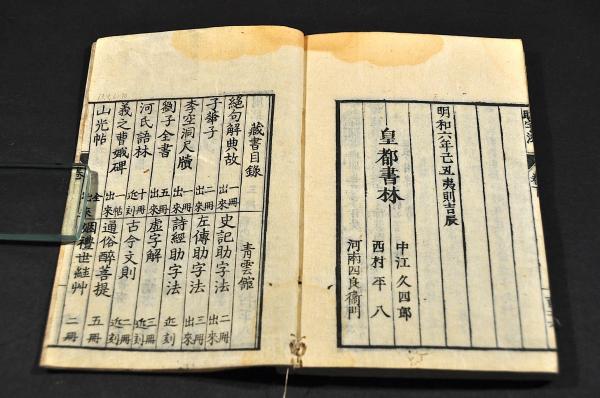 明和六年己丑夷則吉辰
皇都書林
中江久四郎
西村平八
河南四良衞門
藏書目錄
青雲館
絕句解典故 一冊出來
史記助字法 二冊出來
子華子 二冊出來
左傳助字法 三冊出來
李空洞尺牘 一冊出來
詩經助字法 近刻
劉子全書 五冊出來
虛字解 三冊出來
河氏語林 十冊近刻
古今文則 二冊近刻
義之曹娥碑 一帖出來
通俗醉菩提 五冊
山光帖 全出來
禮世 艸 二冊